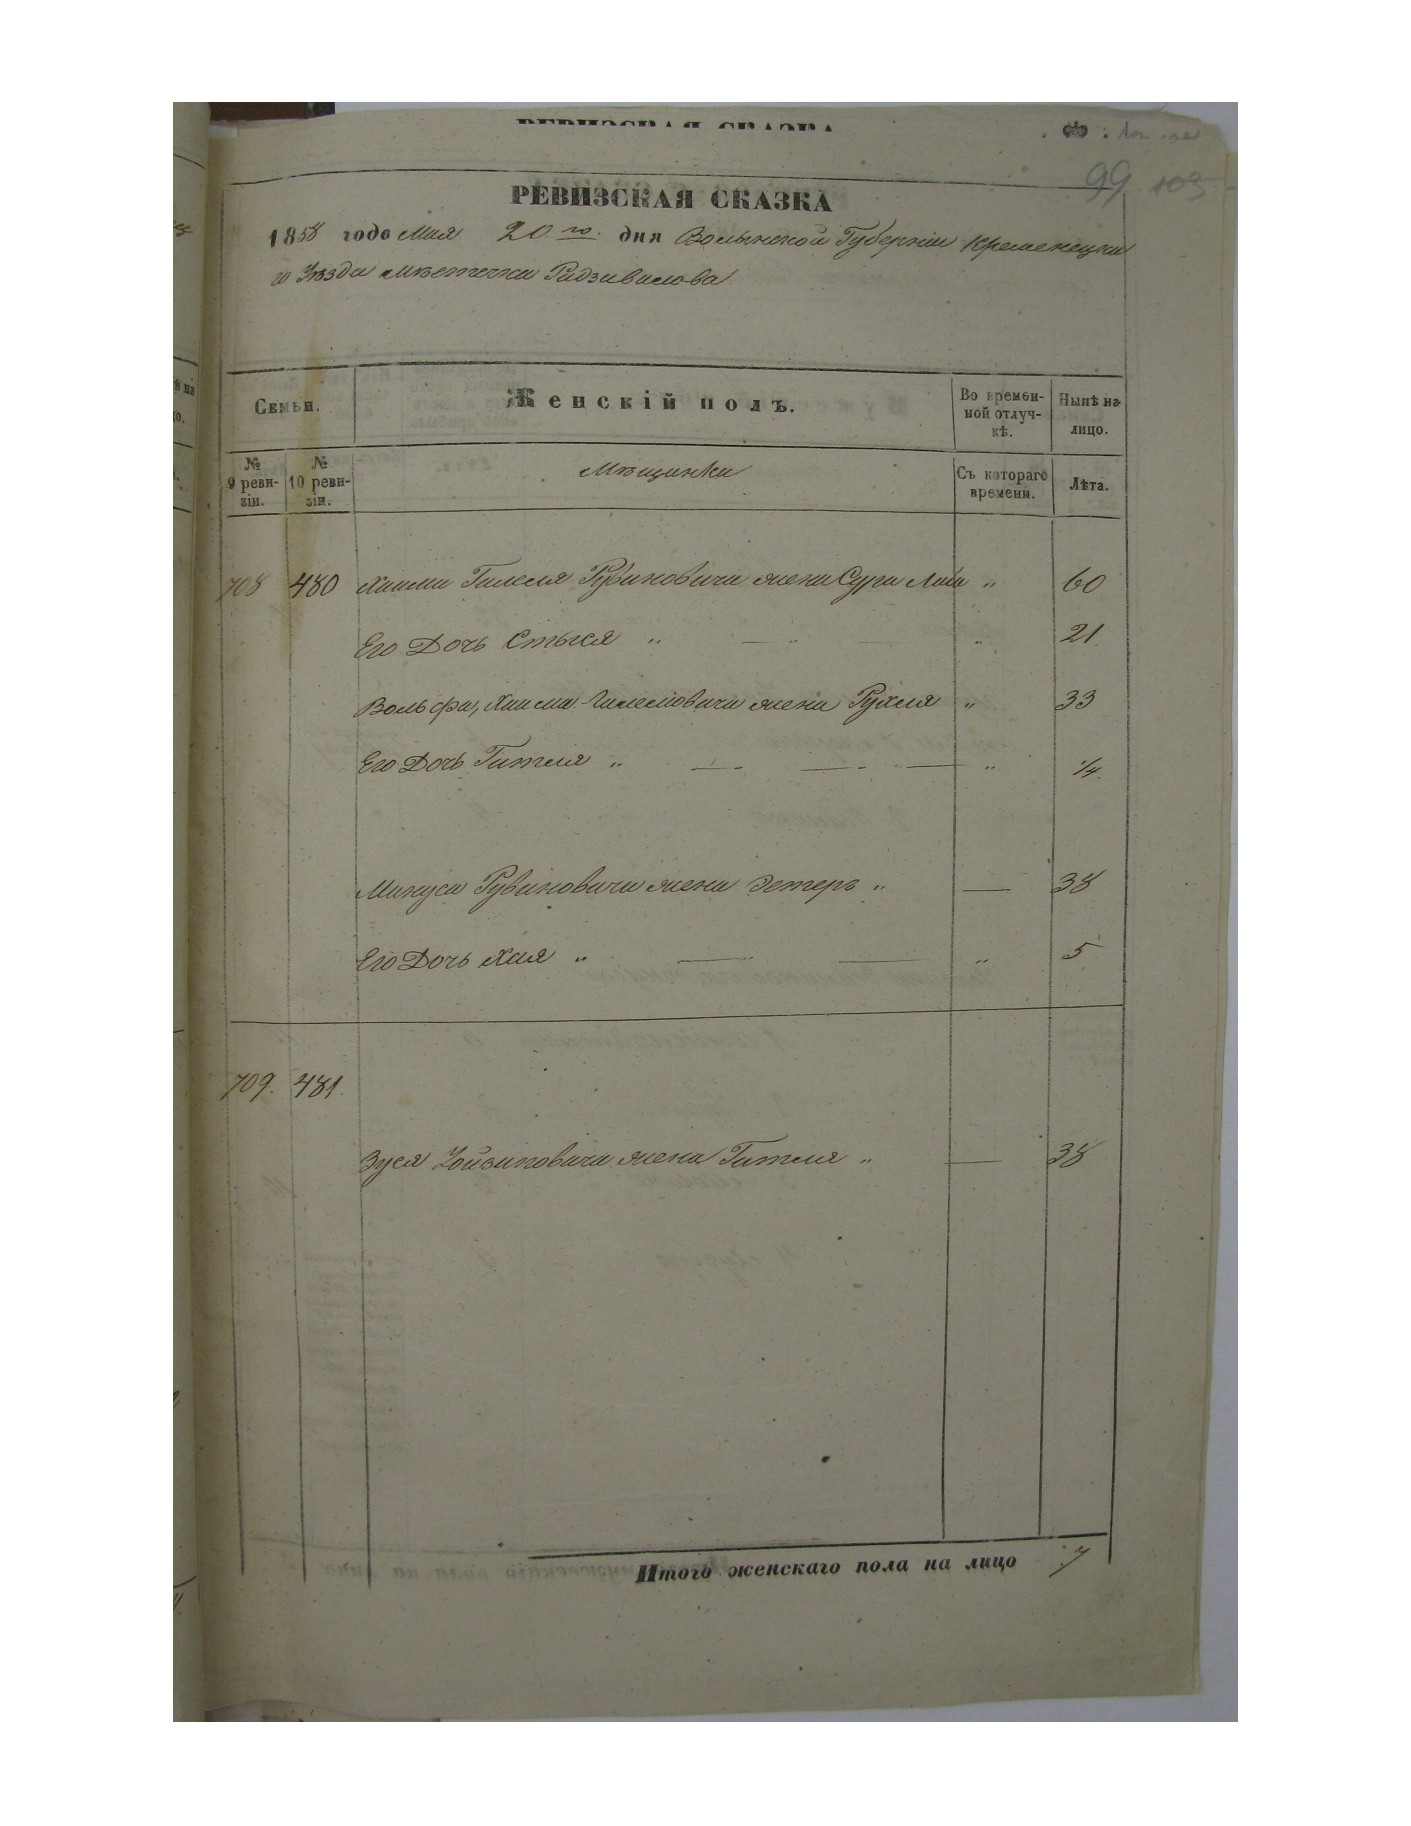 РЕВИЗСКАЯ СКАЗКА
99 103
РЕВИЗСКАЯ СКАЗКА
1858 года Мая 20 го. дня Волынской Губерніи Кременецка
го Уѣзда Мѣстечка Радзивилова
Семьи. Женскій полъ. Во времен-ной отлуч-кѣ. Нынѣ на-лицо.
№ 9 реви-зіи. № 10 реви-зіи. Мѣщанки Съ котораго времени. Лѣта.
708 480 Хаима Гилеля Рувиновича жена Сура Лия " 60
Его Дочь Стыся " — " " 21
Вольфа, Хаима-Гилелиовича жена Рухля " 33
Его Дочь Гителя " — — — " 1/4
Рувиновича жена Эстеръ " — 38
Его Дочь Хая " — — " 5
709. 481.
Зуся жена Гителя " — 38
Итого женскаго пола на лицо 7